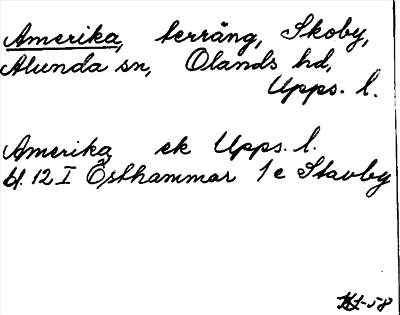 Amerika, terräng, Skoby,
Alunda sn, Olands hd,
Upps. l.
Amerika ek Upps. l.
bl. 12 I Östhammar 1 e Stavby